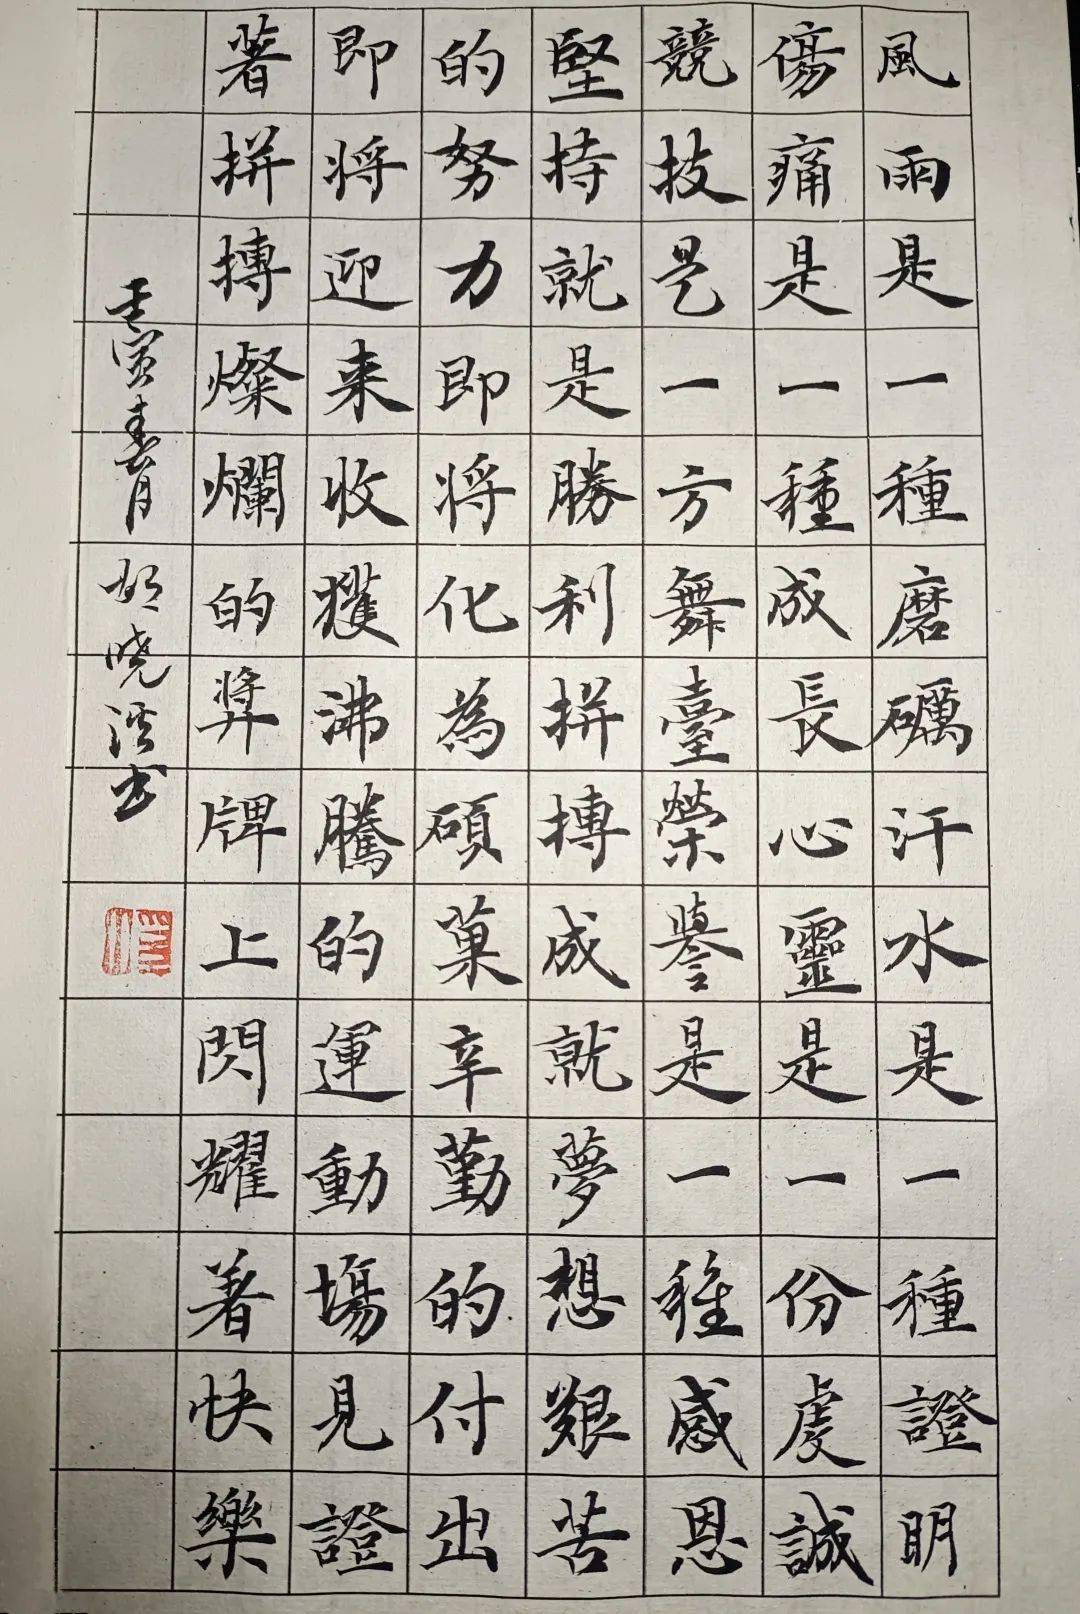 風雨是一種磨礪汗水是一種證明
傷痛是一種成長心靈是一份虔誠
競技是一方舞臺榮譽是一種感恩
堅持就是勝利拼搏成就夢想艱苦
的努力即将化為碩菓辛勤的付出
即将迎来收獲沸騰的運動場見證
著拼搏燦爛的奨牌上閃耀著快樂
壬寅春月 胡曉溪书